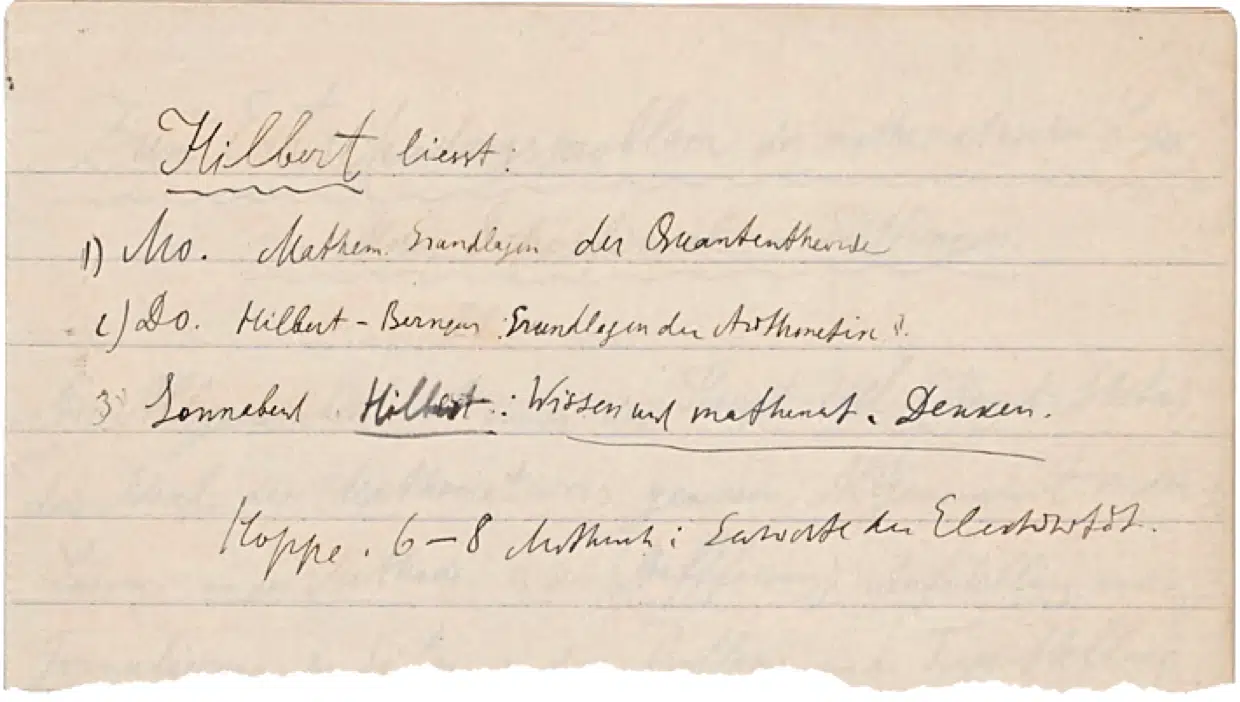 Hilbert liest:
1) Mo. Mathem. Grundlagen der Quantentheorie
2) Do. Hilbert – Bernays Grundlagen der Arithmetik
3) Sonnabend. Hilbert: Wissen und mathemat. Denken.
Hoppe. 6–8 Mittwoch: der Elektrizität.